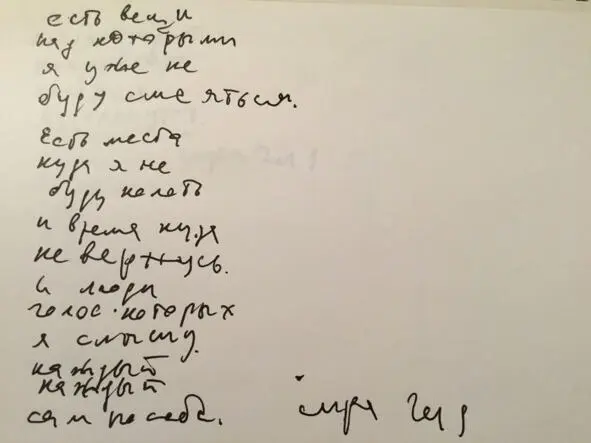 есть вещи
над которыми
я уже не
буду смеяться.
Есть места
куда я не
буду
и время куда
не вернусь.
и люди
голос которых
я слышу.
каждый
каждый
сам по себе.